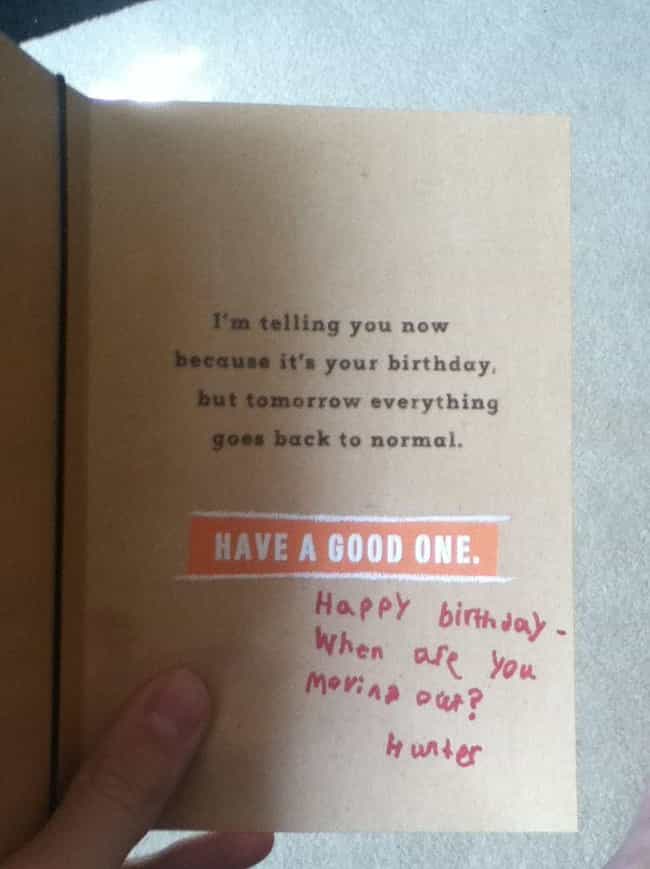 I'm telling you now
because it's your birthday,
but tomorrow everything
goes back to normal.
HAVE A GOOD ONE.
Happy birthday -
When are you
moving out?
Hunter